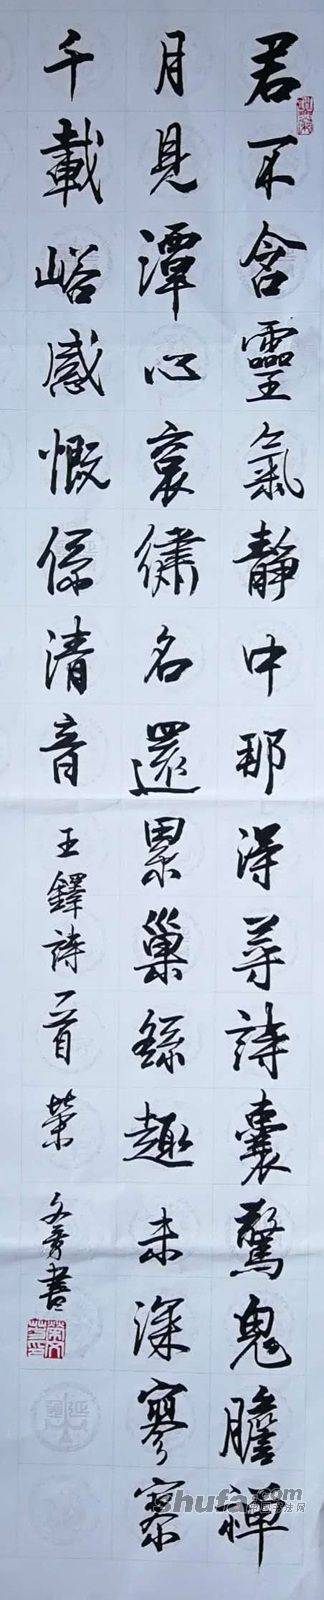 君不含靈氣靜中那得尋詩囊驚鬼膽禪
月見潭心袞繡名還累巢繇趣未深寥寥
千載峪感慨係清音 王鐸詩一首 榮文芳書